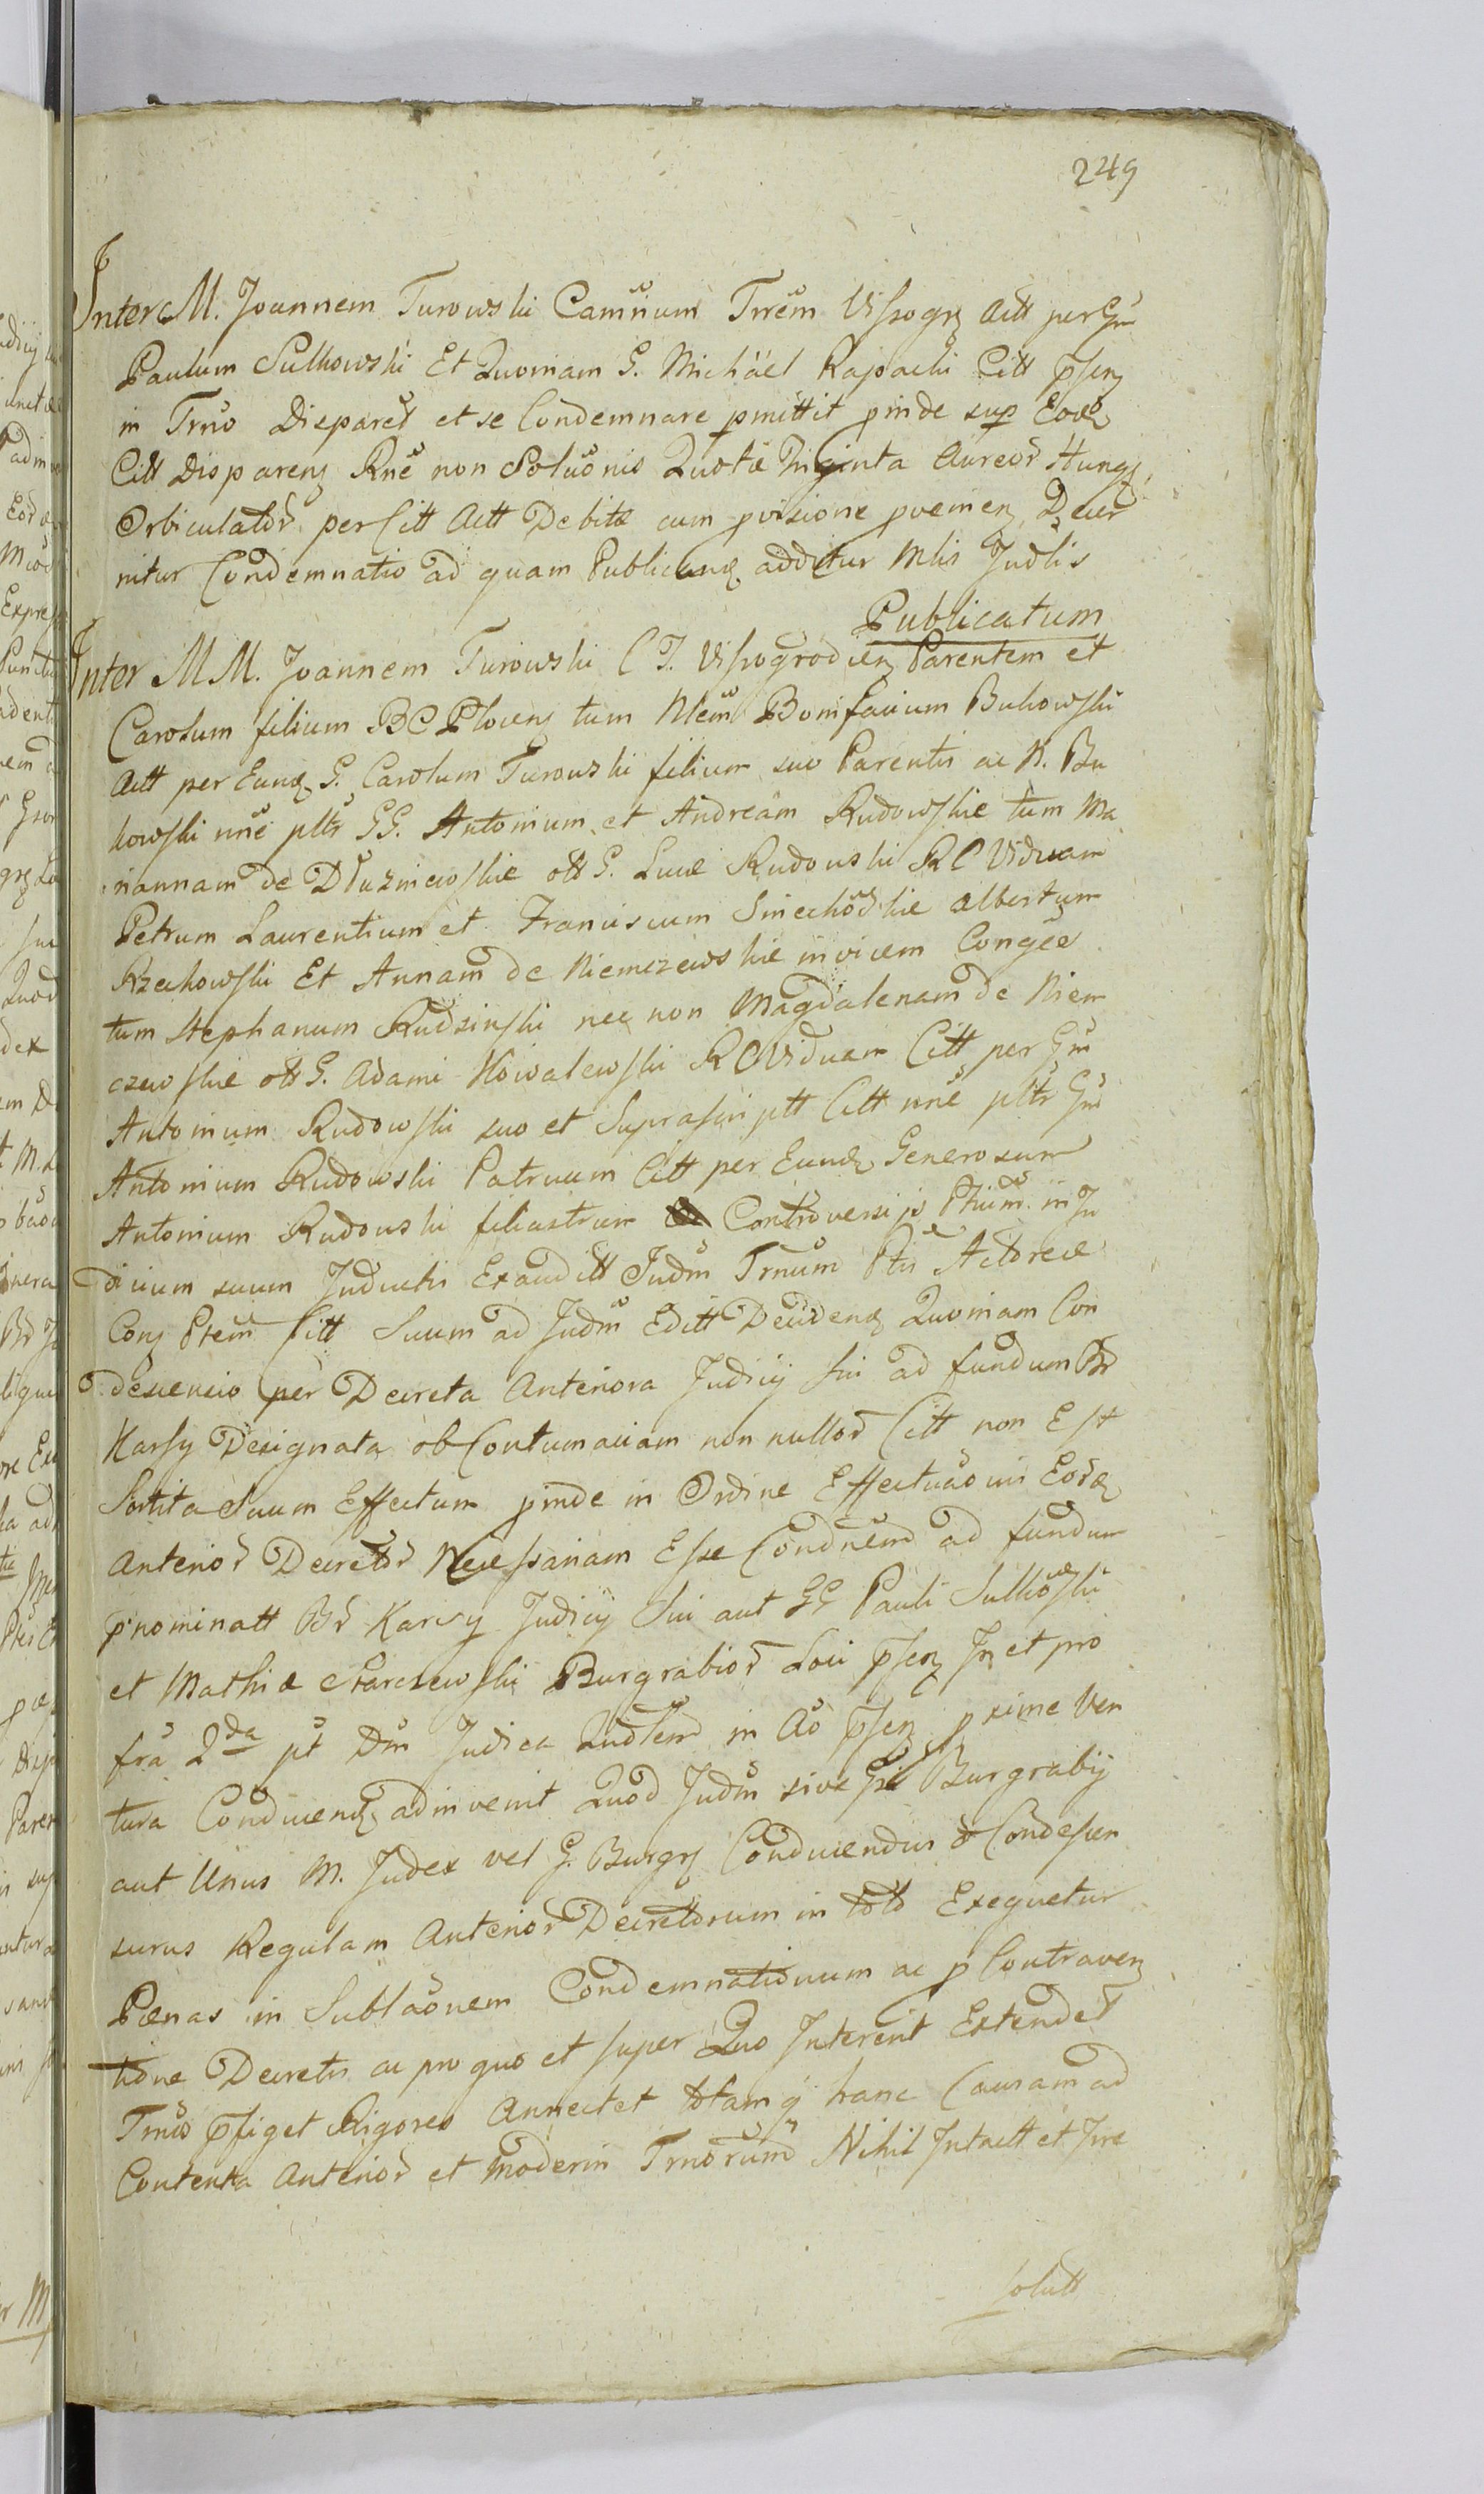 249
Inter M. Joannem Turowski Camrium Trrem Vissogrz Actt per Gm
Paulum Sulkowski Et Quoniam G. Michäel Rapacki Citt pserz
in Trno Disparet et se Condemnare pmittit pinde sup Eode
Citt Disparenz Rne non Soluonis Quotæ Triginta Aureor Hungz
Orbiculator per Citt Actt Debitæ cum pvisione pvenienz Decer
nitur Condemnatio ad quam Publicandz additur Mlis Judlis
Publicatum
Inter MM. Joannem Turowski C T. Vissogrodienz Parentem et
Carolum filium BC Plocenz tum Nlem Bonifacium Bukowski
Actt per Eundz G. Carolum Turowski filium suo Parentis ac N. Bu
kowski nne pltr GG. Antonium et Andream Rudowskie tum Ma
riannam de Dłużniewskie ott G. Lucæ Rudowski RC Viduam
Petrum Laurentium et Franciscum Smiechoskie Albertum
Rzechowski Et Annam de Niemczewskie invicem Congee
tum Stephanum Rudzinski nec non Magdalenam de Niem
czewskie ott G. Adami Kowalewski RC Viduam Citt per Gm
Antonium Rudowski suo et Suprascriptt Citt nne pltr Gm
Antonium Rudowski Patruum Citt per Eundz Generosum
Antonium Rudowski filiastrum Controversijs Ptium in Ju
dicium suum Inductis Exauditt Judm Trnum Ptis Actoreæ
Conz Ptem Citt Suum ad Judm Editt Decidendz Quoniam Con
descensio per Decreta Anteriora Judicij Sui ad fundum Br
Karsy Designata ob Contumaciam non nullor Citt non Est
Sortita Suum Effectum pinde in Ordine Effectuaonis Eorde
Anterior Decretor Necessariam Esse Condnem ad fundum
pnominatt Br Karsy Judicij Sui aut GG Pauli Sulkoski
et Mathiæ Starczewski Burgrabior Loci pserz In et pro
fra 2da pt Dm Judica Qudlem in Ao pserz pxime Ven
tura Conducendz adinvenit Quod Judm sive Gsi Burgrabij
aut Unus M. Judex vel G. Burgrz Conducendus & Condescen
surus Regulam Anterior Decretorum in toto Exequetur
Pœnas in Sublaonem Condemnationum ac p Contravenz
tione Decretis ac pro quo et super Quo Intererit Extendet
Trnis pfiget Rigores Annectet totamq hanc Causam ad
Contenta Anterior et Modernis Trnorum Nihil Intactt et Irre
solutt